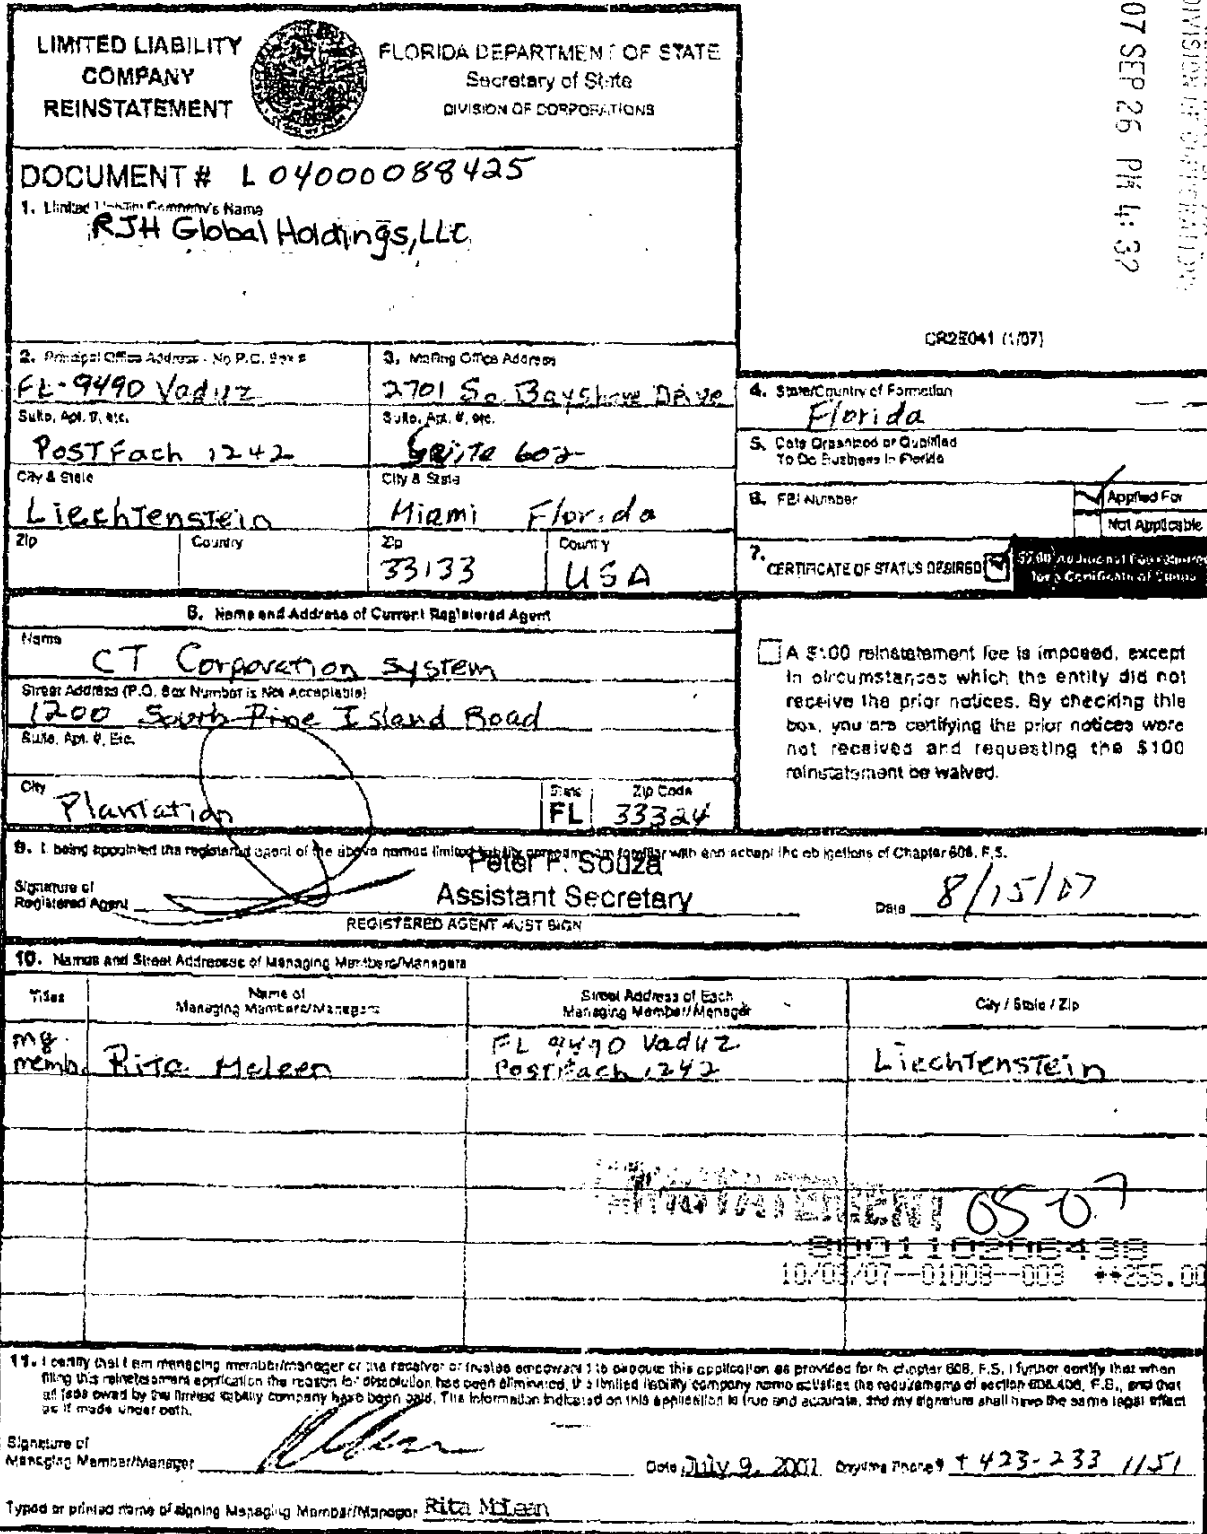 LIMITED LIABILITY
COMPANY
REINSTATEMENT
FLORIDA DEPARTMENT OF STATE
Secretary of State
DIVISION OF CORPORATIONS
07 SEP 26 PM 4:32
DIVISION OF CORPORATIONS
DOCUMENT # L04000088425
1. Limited Liability Company's Name
RJH Global Holdings, LLC
CR2E041 (1/07)
2. Principal Office Address - No P.O. Box #
FL-9490 Vaduz
Suite, Apt. #, etc.
PostFach 1242
City & State
Liechtenstein
Zip
Country
3. Mailing Office Address
2701 So. Bayshore Drive
Suite, Apt. #, etc.
Suite 602
City & State
Miami Florida
Zip
33133
Country
USA
4. State/Country of Formation
Florida
5. Date Organized or Qualified
To Do Business in Florida
6. FEI Number
Applied For
Not Applicable
7. CERTIFICATE OF STATUS DESIRED
$5.00 Additional Fee Required
for a Certificate of Status
8. Name and Address of Current Registered Agent
Name
CT Corporation System
Street Address (P.O. Box Number is Not Acceptable)
1200 South Pine Island Road
Suite, Apt. #, Etc.
City
Plantation
State
FL
Zip Code
33324
A $100 reinstatement fee is imposed, except
in circumstances which the entity did not
receive the prior notices. By checking this
box, you are certifying the prior notices were
not received and requesting the $100
reinstatement be waived.
9. I, being appointed the registered agent of the above named limited liability company, am familiar with and accept the obligations of Chapter 608, F.S.
Peter F. Souza
Assistant Secretary
Signature of
Registered Agent
Date 8/15/07
REGISTERED AGENT MUST SIGN
10. Names and Street Addresses of Managing Members/Managers
Titles
Name of
Managing Members/Managers
Street Address of Each
Managing Member/Manager
City / State / Zip
mg.
memb.
Rita McLean
FL 9490 Vaduz
PostFach 1242
Liechtenstein
REINSTATEMENT 05-07
800110206438
10/03/07--01008--003 **255.00
11. I certify that I am managing member/manager or the receiver or trustee empowered to execute this application as provided for in chapter 608, F.S. I further certify that when
filing this reinstatement application the reason for dissolution has been eliminated, the limited liability company name satisfies the requirements of section 608.406, F.S., and that
all fees owed by the limited liability company have been paid. The information indicated on this application is true and accurate, and my signature shall have the same legal effect
as if made under oath.
Signature of
Managing Member/Manager
Date July 9, 2007 Daytime Phone # +423-233 1151
Typed or printed name of signing Managing Member/Manager Rita McLean